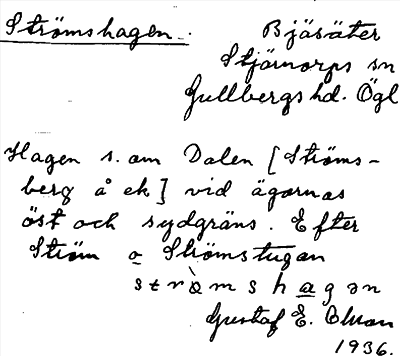 Strömshagen.
Bjäsäter
Stjärnorps sn
Gullbergs hd. Ögl
Hagen s. om Dalen [Ströms-
berg å ek] vid ägornas
öst och sydgräns. Efter
Ström o Strömstugan
strö̀mshagən
Gustaf E. Olsson
1936.